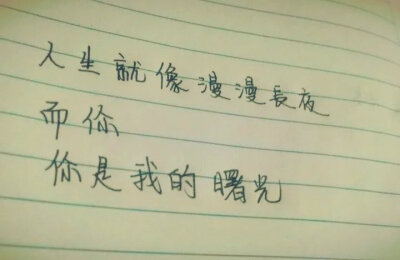 人生就像漫漫長夜
而你
你是我的曙光